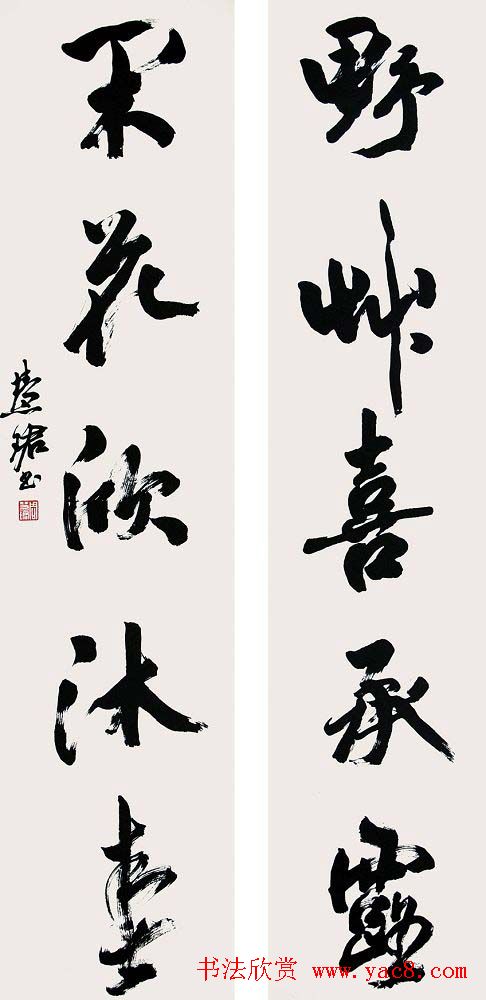 野艸喜承露
闲花欣沐春
慧珺书
书法欣赏 www.yac8.com